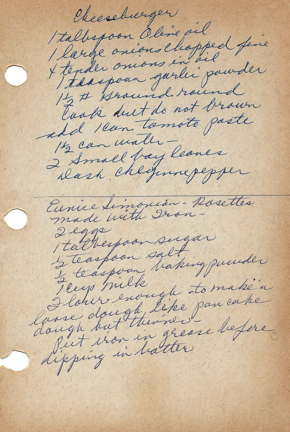 Cheeseburger
1 talbspoon Olive oil
1 large onions chopped fine
& tender onions in oil
1 teaspoon garlic powder
1½ # ground round
Cook but do not brown
add 1 can tomato paste
1½ can water -
2 Small bay leaves
Dash cheyenne pepper
Eunice Simonian - Rosettes
made with Iron -
2 eggs
1 talbespoon sugar
½ teaspoon salt
½ teaspoon baking powder
1 cup milk
Flour enough to make a
loose dough like pancake
dough but thinner -
Put iron in grease before
dipping in batter